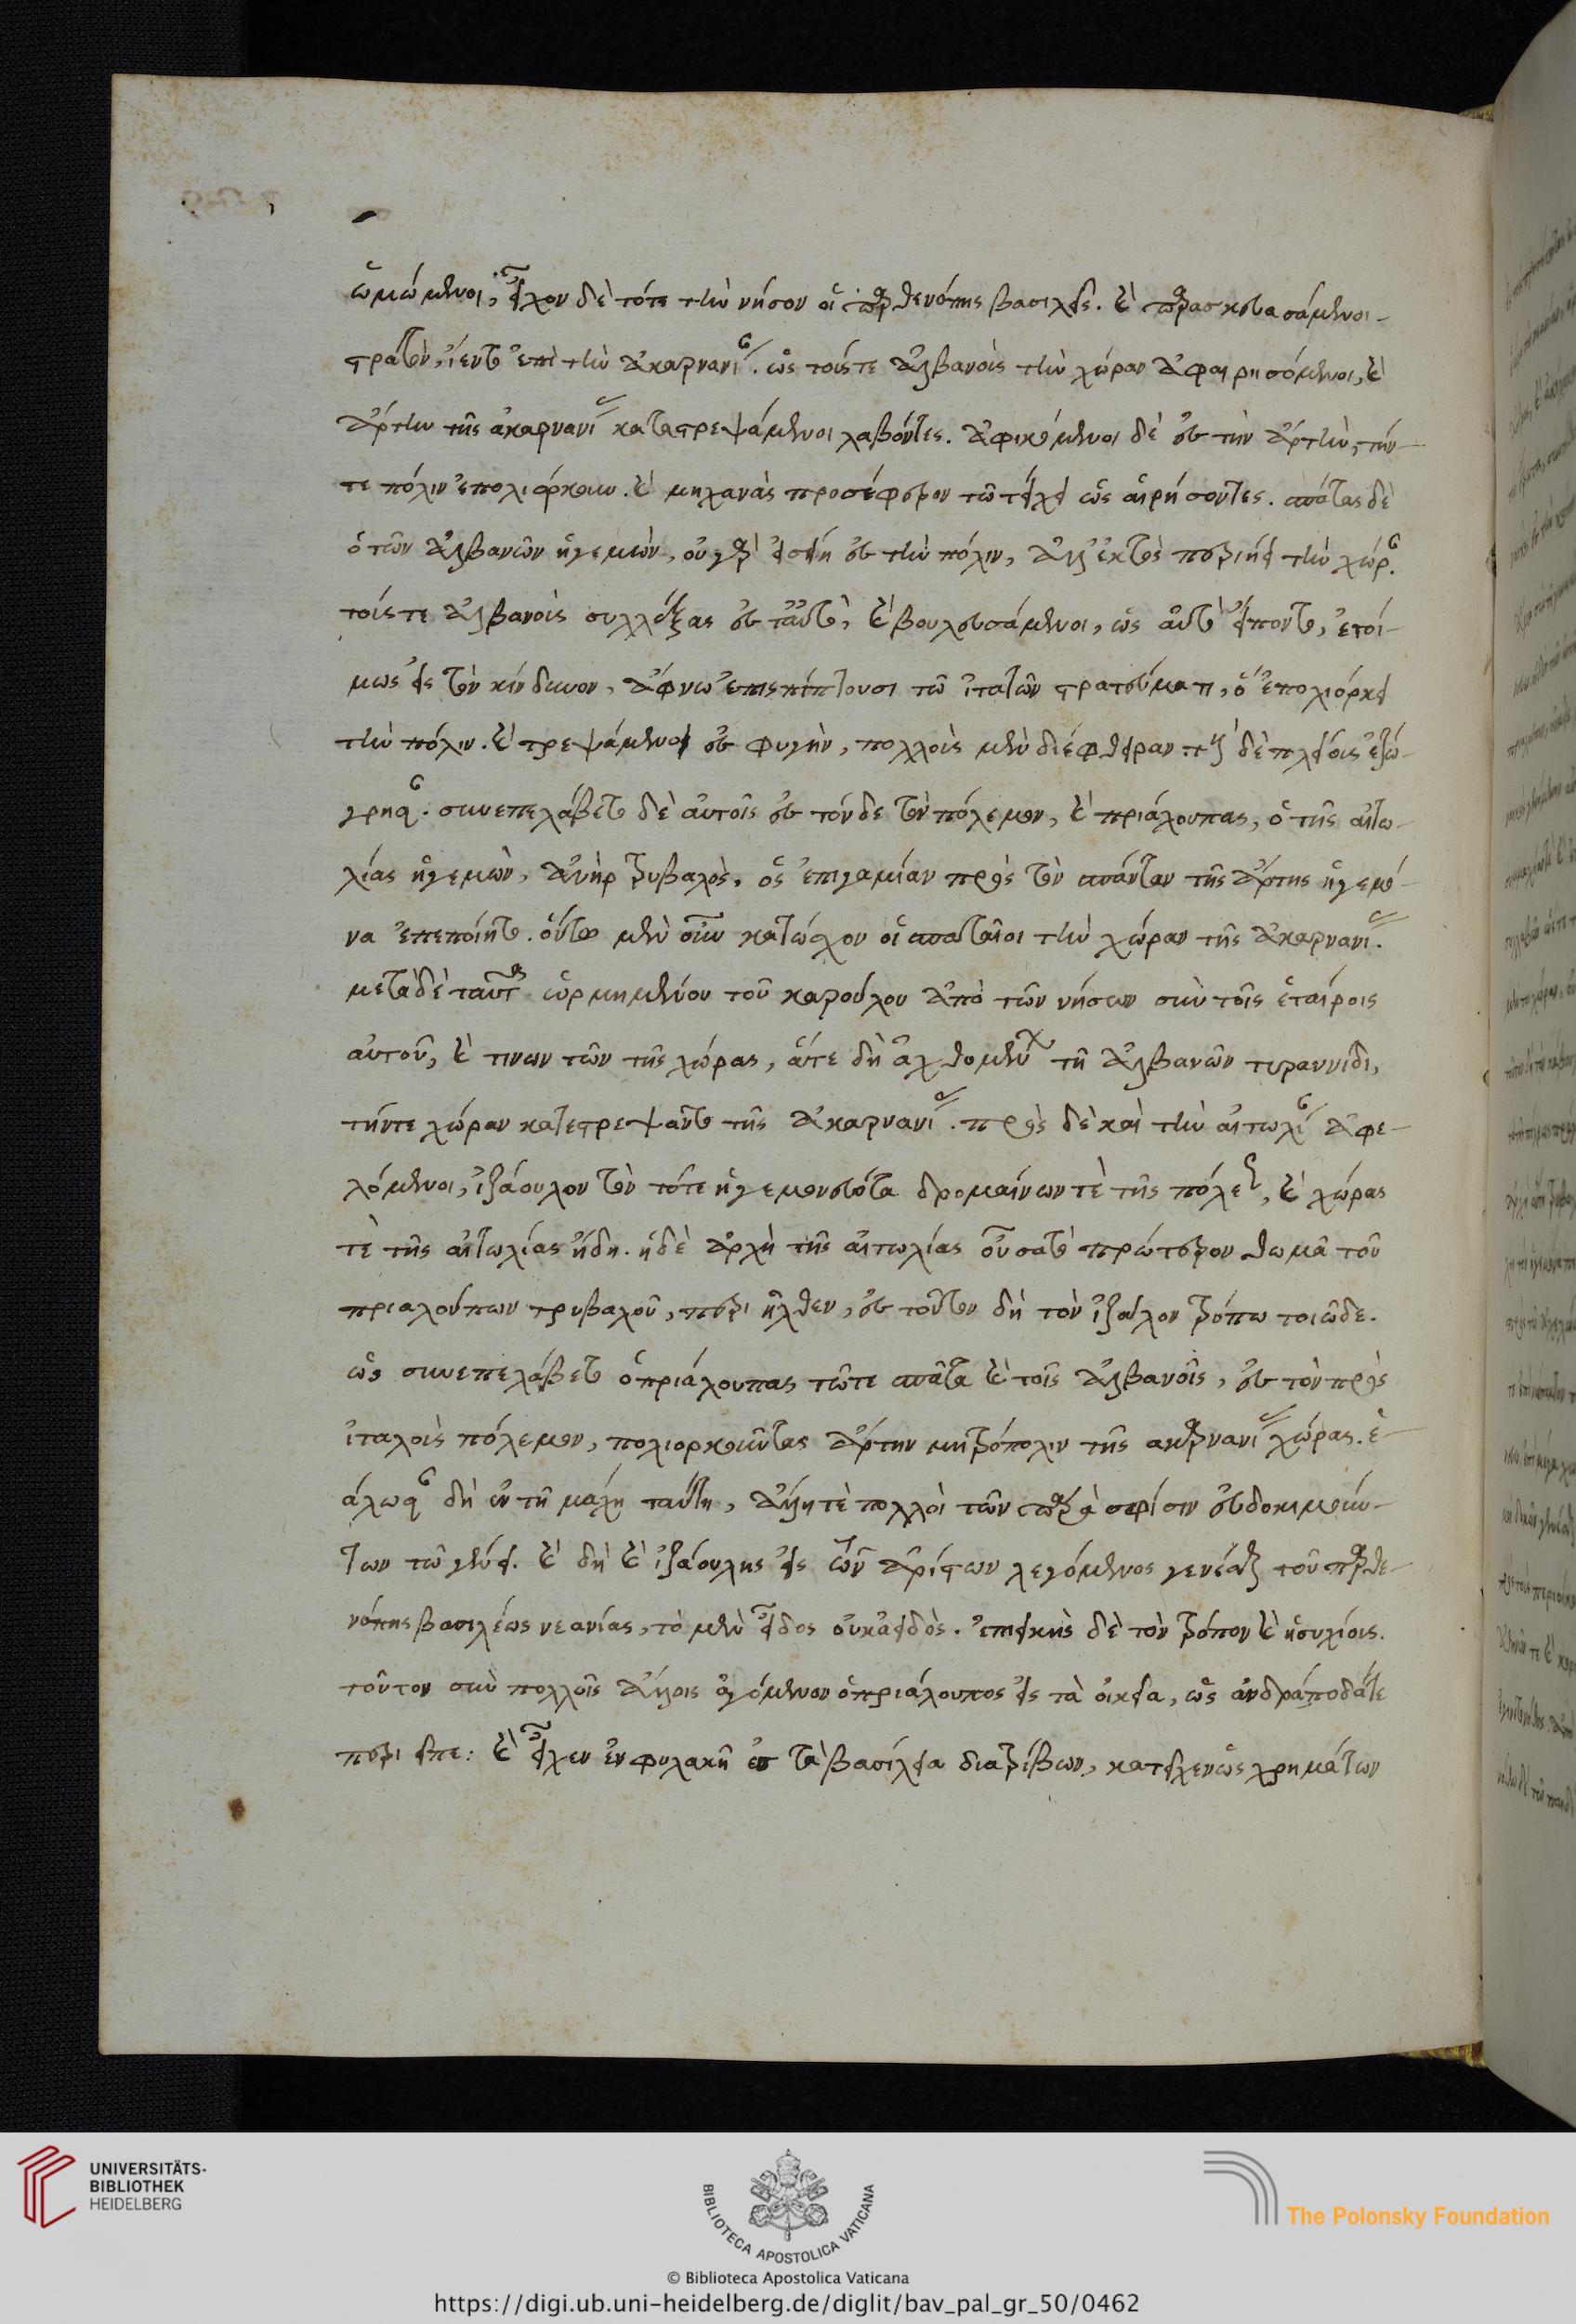 ὡρμώμενοι, εἶχον δὲ τότε τὴν νῆσον οἱ παρθενόπης βασιλεῖς. καὶ παρασκευασάμενοι
στρατὸν, ἵεντο ἐπὶ τὴν ἀκαρνανίαν. ὡς τούς τε ἀλβανοὺς τὴν χώραν ἀφαιρησόμενοι, καὶ
ἄρτην τῆς ἀκαρνανίας καταστρεψάμενοι λαβόντες. ἀφικόμενοι δὲ ἐς τὴν ἄρτην, τήν
τε πόλιν ἐπολιόρκουν. καὶ μηχανὰς προσέφερον τῶ τείχει ὡς αἱρήσοντες. σπάτας δὲ
ὁ τῶν ἀλβανῶν ἡγεμὼν, οὐ γὰρ ἐσῄει ἐς τὴν πόλιν, ἀλλ' ἐκτὸς περιῄει τὴν χώραν.
τούς τε ἀλβανοὺς συλλέξας ἐς ταὐτὸ, καὶ βουλευσάμενοι, ὡς αὐτῶ εἵποντο, ἑτοί-
μως ἐς τὸν κίνδυνον, ἄφνω ἐπεισπίπτουσι τῶ ἰταλῶν στρατεύματι, ὃ ἐπολιόρκει
τὴν πόλιν. καὶ τρεψάμενοι ἐς φυγὴν, πολλοὺς μὲν διέφθειραν πολλῶ δὲ πλείους ἐζώ-
γρησαν. συνεπελάβετο δὲ αὐτοῖς ἐς τόνδε τὸν πόλεμον, καὶ πριάλουπας, ὁ τῆς αἰτω-
λίας ἡγεμὼν, ἀνὴρ τριβαλὸς, ὃς ἐπιγαμίαν πρὸς τὸν σπάνταν τῆς ἄρτης ἡγεμό-
να ἐπεποίητο. οὕτω μὲν οὖν κατέσχον οἱ σπαταῖοι τὴν χώραν τῆς ἀκαρνανίας.
μετὰ δὲ ταῦτα ὡρμημένου τοῦ καρούλου ἀπὸ τῶν νήσων σὺν τοῖς ἑταίροις
αὐτοῦ, καὶ τινων τῶν τῆς χώρας, ἅτε δὴ ἀχθομένων τῆ ἀλβανῶν τυραννίδι,
τήν τε χώραν κατεστρέψαντο τῆς ἀκαρνανίας. πρὸς δὲ καὶ τὴν αἰτωλίαν ἀφε-
λόμενοι, ἰζάουλον τὸν τότε ἡγεμονεύοντα δρομαίνων τὲ τῆς πόλεως, καὶ χώρας
τὲ τῆς αἰτωλίας ἤδη. ἡ δὲ ἀρχὴ τῆς αἰτωλίας οὖσα τὸ πρώτερον θωμᾶ τοῦ
πριαλούπων τρυβαλοῦ, περιῆλθεν, ἐς τοῦτον δὴ τὸν ἰζαύλον τρόπω τοιῶδε.
ὡς συνεπελάβετο ὁ πριάλουπας τῶτε σπάτα καὶ τοῖς ἀλβανοῖς, ἐς τὸν πρὸς
ἰταλοὺς πόλεμον, πολιορκοῦντας ἄρτην μητρόπολιν τῆς ακαρνανίας χώρας. ἑ-
άλωσαν δὴ ἐν τῆ μάχη ταύτη, ἄλλοι τὲ πολλοὶ τῶν παρὰ σφίσιν εὐδοκιμούν-
των τῶ γένει. καὶ δὴ καὶ ἰζάουλης εἷς τῶν ἀρίστων λεγόμενος γενέσθαι τοῦ παρθε-
νόπης βασιλέως νεανίας, τὸ μὲν εἶδος οὐκ ἀειδὸς. ἐπιεικὴς δὲ τὸν τρόπον καὶ ἡσυχίοις.
τοῦτον σὺν πολλοῖς ἄλλοις ἀγόμενον ὁ πριάλουπος ἐς τὰ οἰκεῖα, ὡς ἀνδράποδά τε
περιεῖπε: καὶ εἶχεν ἐν φυλακῆ ἐς τὰ βασίλεια διατρίβων, κατεῖχεν ὡς χρημάτων
UNIVERSITÄTS-
BIBLIOTHEK
HEIDELBERG
BIBLIOTECA APOSTOLICA VATICANA
The Polonsky Foundation
© Biblioteca Apostolica Vaticana
https://digi.ub.uni-heidelberg.de/diglit/bav_pal_gr_50/0462